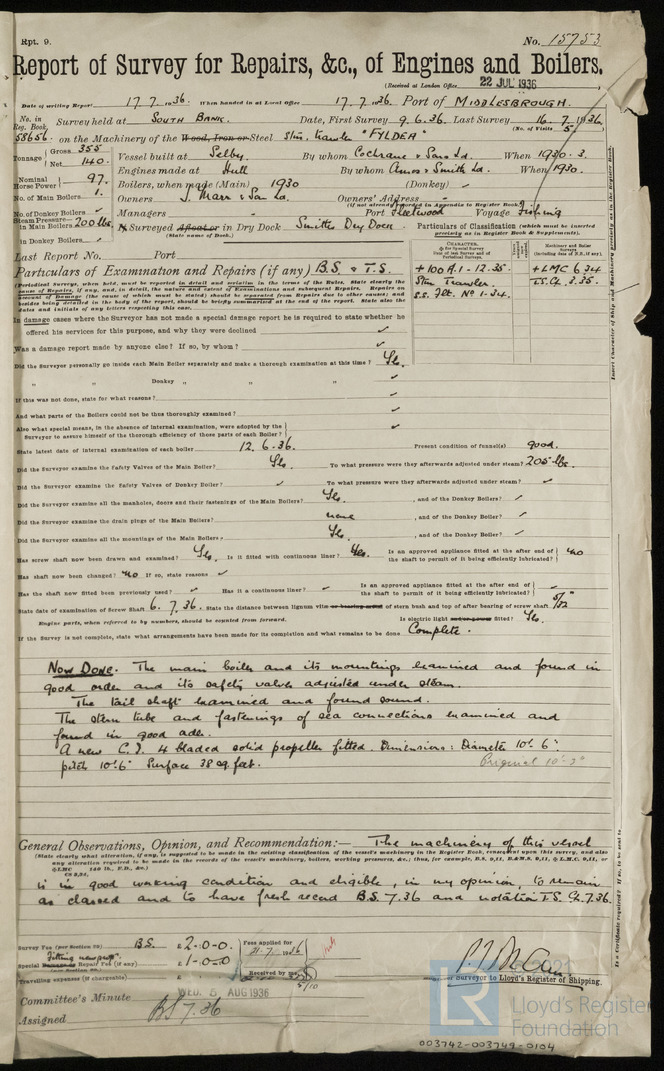 Rpt. 9.
No. 15753
Report of Survey for Repairs, &c., of Engines and Boilers.
(Received at London Office 22 JUL 1936
Date of writing Report 17.7.1936. When handed in at Local Office 17.7.1936. Port of MIDDLESBROUGH.
No. in Reg. Book 58656 Survey held at SOUTH BANK. Date, First Survey 9.6.36. Last Survey 16.7.1936
(No. of Visits 5)
on the Machinery of the Wood, Iron or Steel Stm. trawler "FYLDEA"
Tonnage Gross 355 Net 140.
Vessel built at Selby. By whom Cochrane & Sons Ld. When 1930.3.
Engines made at Hull By whom Amos & Smith Ld. When 1930.
Nominal Horse Power 97.
Boilers, when made (Main) 1930 (Donkey) ✓
No. of Main Boilers 1.
Owners J. Marr & Son Ld. Owners' Address
(if not already recorded in Appendix to Register Book.)
No. of Donkey Boilers ✓
Managers Port Fleetwood Voyage Fishing
Steam Pressure in Main Boilers 200 lbs.
in Donkey Boilers ✓
If Surveyed Afloat or in Dry Dock Smiths Dry Dock
(State name of Dock.)
Particulars of Classification (which must be inserted precisely as in Register Book & Supplements).
Last Report No. Port
Particulars of Examination and Repairs (if any) B.S. & T.S.
+ 100 A.1 - 12.35. + LMC 6.34
Stm Trawler. T.S. Cl. 3.35.
S.S. Flt. No 1-34.
In damage cases where the Surveyor has not made a special damage report he is required to state whether he
offered his services for this purpose, and why they were declined ✓
Was a damage report made by anyone else? If so, by whom? ✓
Did the Surveyor personally go inside each Main Boiler separately and make a thorough examination at this time? Yes.
" " Donkey " " " ✓
If this was not done, state for what reasons? ✓
And what parts of the Boilers could not be thoroughly examined? ✓
Also what special means, in the absence of internal examination, were adopted by the
Surveyor to assure himself of the thorough efficiency of those parts of each Boiler? ✓
State latest date of internal examination of each boiler 12.6.36. Present condition of funnel(s) good.
Did the Surveyor examine the Safety Valves of the Main Boiler? Yes. To what pressure were they afterwards adjusted under steam? 205 lbs.
Did the Surveyor examine the Safety Valves of Donkey Boiler? ✓ To what pressure were they afterwards adjusted under steam? ✓
Did the Surveyor examine all the manholes, doors and their fastenings of the Main Boilers? Yes. , and of the Donkey Boilers? ✓
Did the Surveyor examine the drain plugs of the Main Boilers? none , and of the Donkey Boilers? ✓
Did the Surveyor examine all the mountings of the Main Boilers, Yes. , and of the Donkey Boilers? ✓
Has screw shaft now been drawn and examined? Yes. Is it fitted with continuous liner? Yes. Is an approved appliance fitted at the after end of the shaft to permit of it being efficiently lubricated? no
Has shaft now been changed? no If so, state reasons ✓
Has the shaft now fitted been previously used? ✓ Has it a continuous liner? ✓ Is an approved appliance fitted at the after end of the shaft to permit of it being efficiently lubricated? ✓
State date of examination of Screw Shaft 6.7.36. State the distance between lignum vitæ or bearing metal of stern bush and top of after bearing of screw shaft 5/32
Engine parts, when referred to by numbers, should be counted from forward. Is electric light fitted? Yes.
If the Survey is not complete, state what arrangements have been made for its completion and what remains to be done Complete.
Now Done. The main boiler and its mountings examined and found in
good order and its safety valves adjusted under steam.
The tail shaft examined and found sound.
The stern tube and fastenings of sea connections examined and
found in good order.
A new C.I. 4 bladed solid propeller fitted. Dimensions: Diameter 10'.6"
pitch 10'.6" Surface 38 sq. feet. Original 10'-3"
General Observations, Opinion, and Recommendation:— The machinery of this vessel
(State clearly what alteration, if any, is suggested to be made in the existing classification of the vessel's machinery in the Register Book, consequent upon this survey, and also
any alteration required to be made in the records of the vessel's machinery, boilers, working pressures, &c.; thus, for example, B.S. 9,11, B.&M.S. 9,11, or
is in good working condition and eligible, in my opinion, to remain
as classed and to have fresh record B.S. 7.36 and notation T.S. Cl. 7.36.
Survey Fee (per Section 29) B.S. £ 2-0-0. Fees applied for 21.7.1936
Fitting new prop. Special Repair Fee (if any) £ 1-0-0
Travelling expenses (if chargeable) £ Received by me
Surveyor to Lloyd's Register of Shipping.
Committee's Minute WED. 5 AUG 1936
Assigned BS 7.36
Lloyd's Register
Foundation
003742-003749-0104